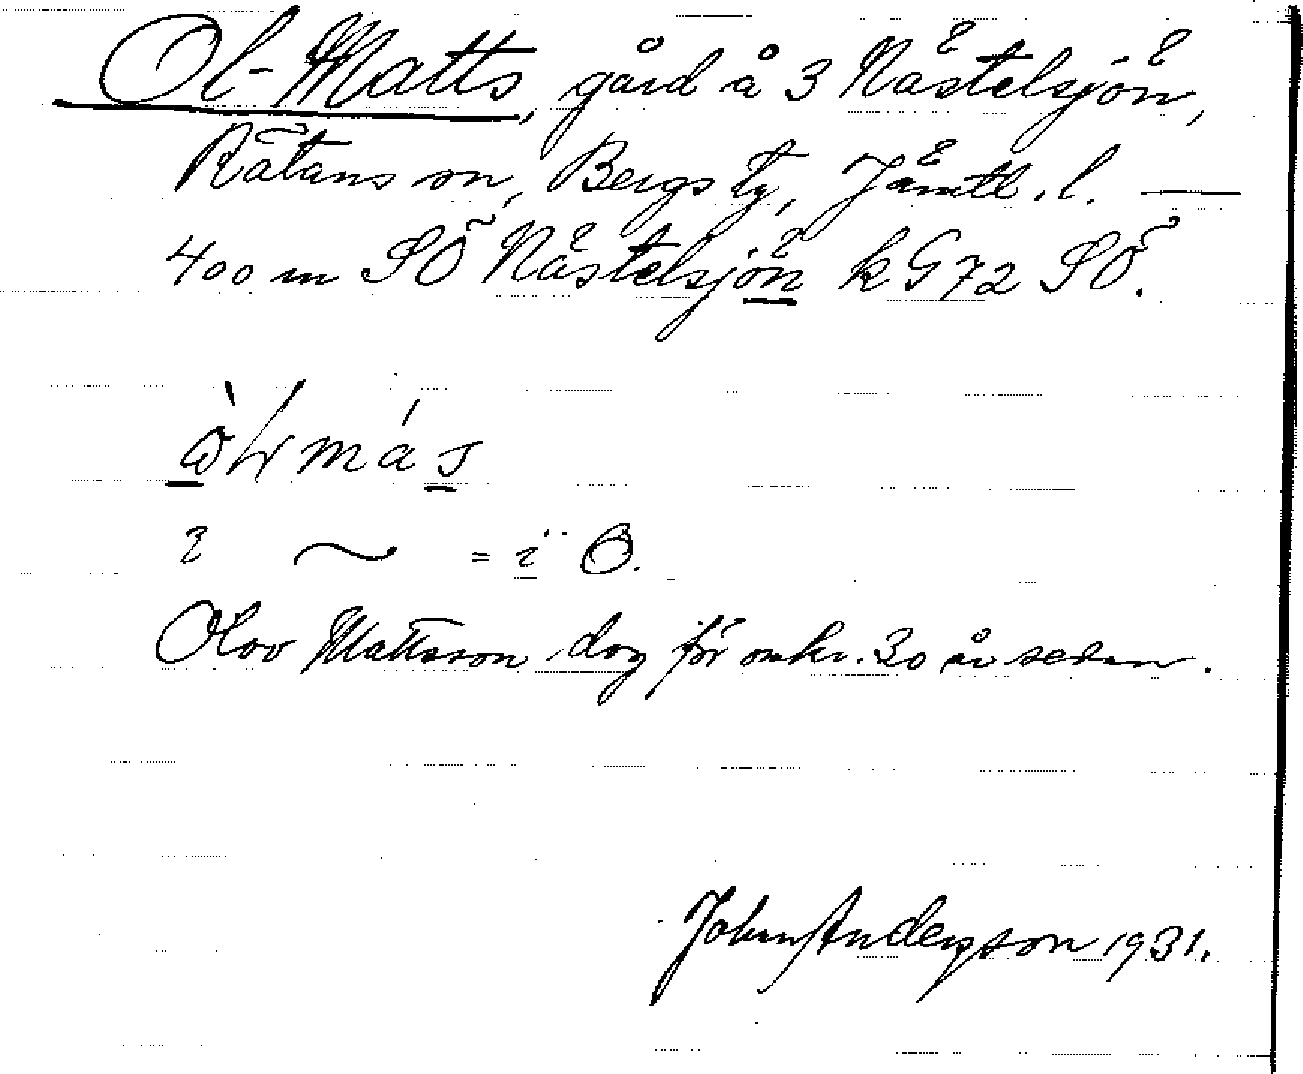 Ol-Matts, gård å 3 Nästelsjön,
Rätans sn, Bergs tg, Jämtl. l. —
400 m SÖ Nästelsjön k G 72 SÖ.
~ = i B.
Olov Mattsson dog för omkr. 30 år sedan.
Johan Andersson 1931.